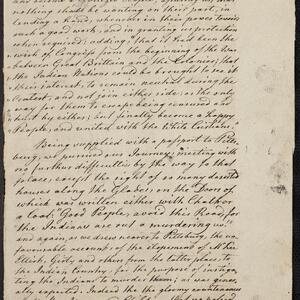 nothing should be wanting on their part, in
lending a hand, whenever in their power towards
such a good work, and in granting us protection
when required; adding, "That it had been the
work of Congress from the beginning of the War
between Great Brittain and the Colonies; that
the Indian Nations could be brought to see it
their interest, to remain neutral during the
Contest, and not join either side; as the only
way for them to escape being censured and
hurt by either; but finally become a happy
People, and united with the White Christians."
Being supplied with a passport to Pitts
burg, we pursued our Journey; meeting with
no further difficulties by the way to that
place, except the sight of so many deserted
houses along the Glades, on the Doors of
which was written either with Chalk or
a Coal: Good People, avoid this Road, for
the Indians are out a murdering us!
and again, as we drew nearer to Pittsburg, the un
favourable accounts of the elopement of McKee
Elliott, Girty and others from the latter place, to
the Indian Country: for the purpose of instiga
ting the Indians to murder them; as was gener
ally expected. Indeed the gloomy countenances